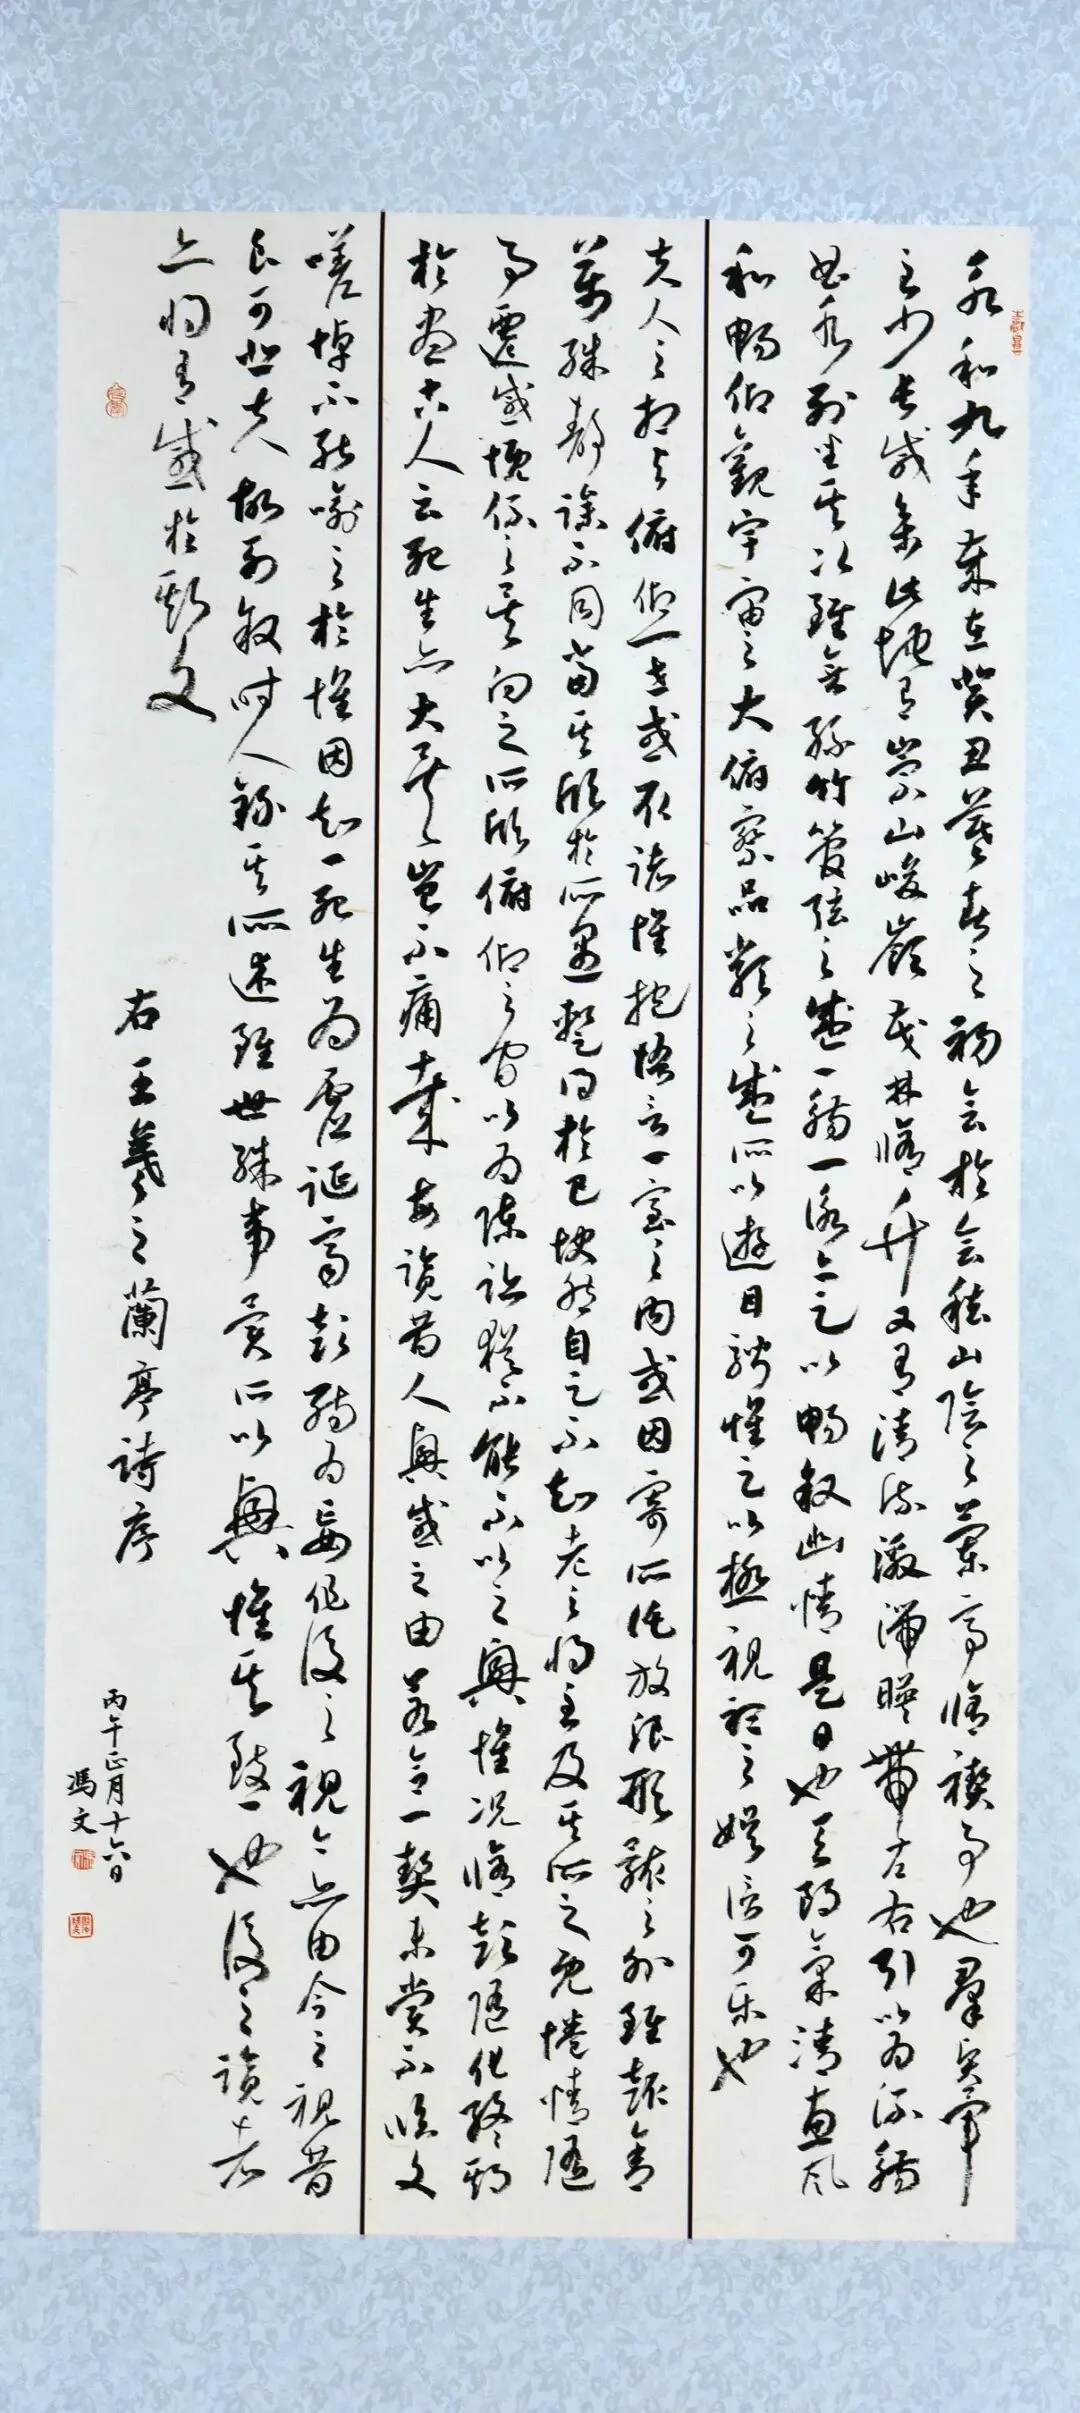 永和九年歲在癸丑暮春之初會於會稽山陰之蘭亭脩禊事也羣賢畢
至少長咸集此地有崇山峻嶺茂林脩竹又有清流激湍暎帶左右引以為流觴
曲水列坐其次雖無絲竹管弦之盛一觴一詠亦足以暢敘幽情是日也天朗氣清惠風
和暢仰觀宇宙之大俯察品類之盛所以遊目騁懷足以極視聽之娛信可樂也
夫人之相與俯仰一世或取諸懷抱悟言一室之內或因寄所託放浪形骸之外雖趣舍
萬殊靜躁不同當其欣於所遇蹔得於己快然自足不知老之將至及其所之既惓情隨
事遷感慨係之矣向之所欣俯仰之間以為陳迹猶不能不以之興懷況脩短隨化終期
於盡古人云死生亦大矣豈不痛哉每覽昔人興感之由若合一契未嘗不臨文
嗟悼不能喻之於懷固知一死生為虛誕齊彭殤為妄作後之視今亦由今之視昔
良可悲夫故列敘時人錄其所述雖世殊事異所以興懷其致一也後之覽者
亦將有感於斯文
右王羲之蘭亭詩序
丙午正月十六日
馮文